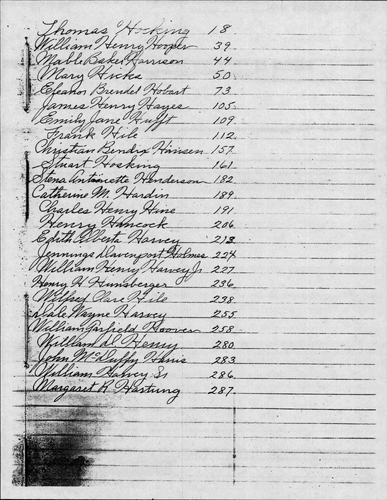 Thomas Hocking 18.
William Henry Hooper 39
Mable Baker Harrison 44
Mary Hicks 50
Eleanor Brendel Hobart 73
James Henry Hayes 105
Emily Jane Hufft 109
Frank Hile 112
Christian Bendix Hansen 157
Stuart Hosking 161
Stena Antoinette Henderson 182
Catherine M. Hardin 189
Charles Henry Hine 191
Henry Hancock 206
Edith Alberta Harvey 213
Jennings Davenport Holmes 224
William Henry Harvey Jr 227
Henry H. Hunsberger 236
Clare Hile 238
Dale Wayne Harvey 255
William Garfield Hoover 258
William D. Henry 280
John McDuffy 283
William Harvey Sr 286
Margaret R Hartung 287.